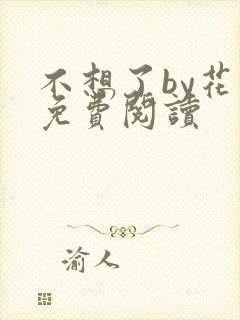 不想了by花
免費閱讀
渝人